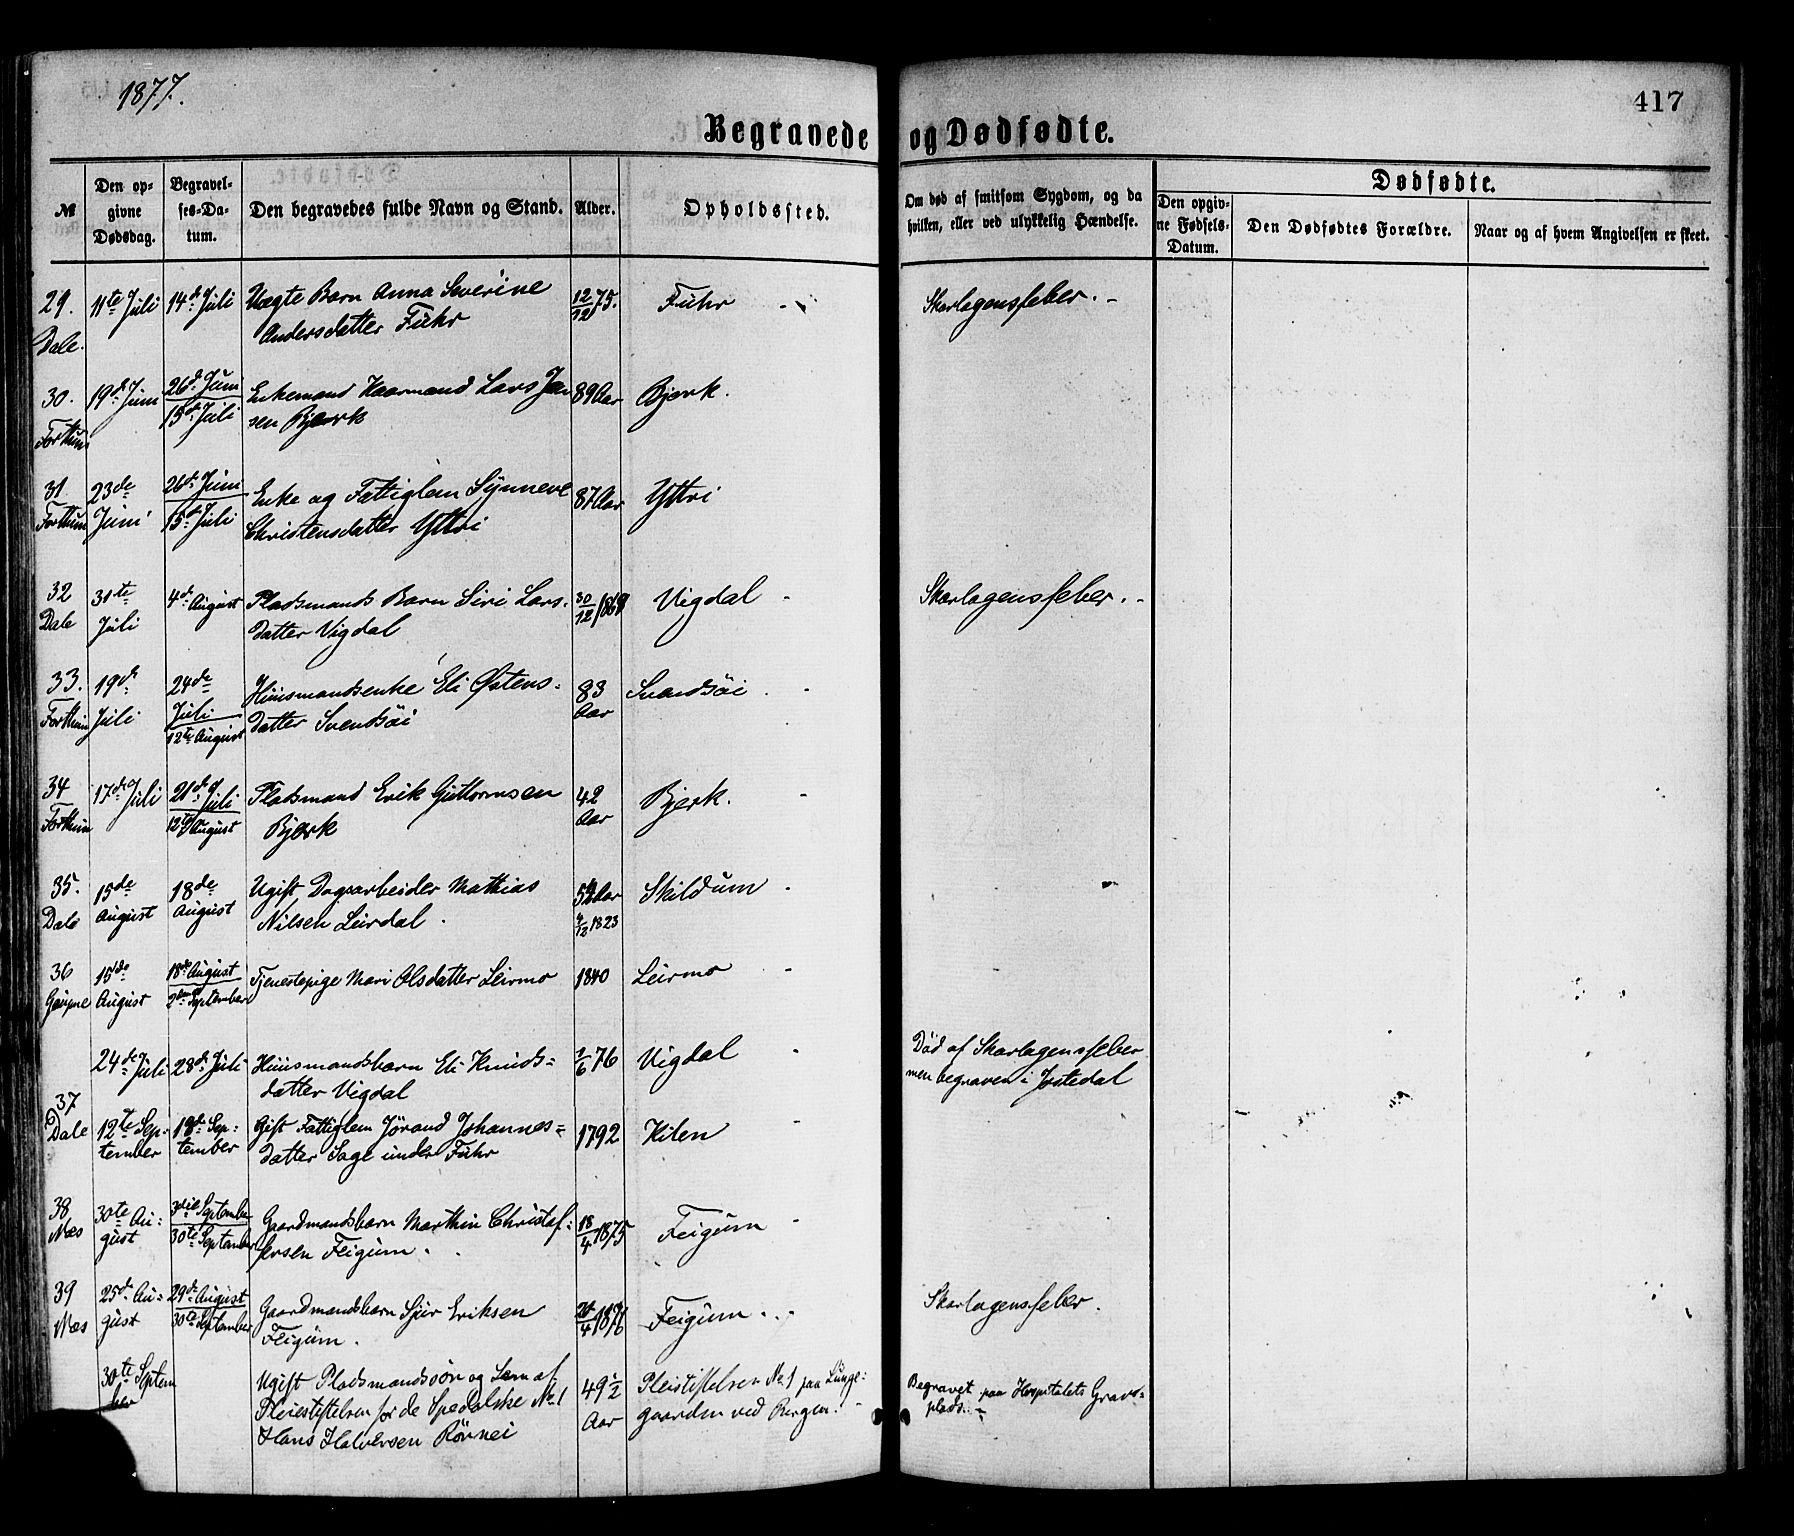 1877.
417
Begravede og Dødfødte.
№
Den opgivne Dødsdag.
Begravelses-Datum.
Den begravedes fulde Navn og Stand.
Alder.
Opholdssted.
Om død af smitsom Sygdom, og da hvilken, eller ved ulykkelig Hændelse.
Dødfødte.
Den opgivne Fødsels-Datum.
Den Dødfødtes Forældre.
Naar og af hvem Angivelsen er skeet.
29. 11te Juli 14de Juli Uægte Barn Anna Severine 12/12 75. Fuhr Skarlagensfeber.
Dale. Andersdatter Fuhr
30. 19de Juni 26de Juni Enkemand Kaarmand Lars Jen 89 Aar Bjerk.
Forthun 15de Juli sen Bjerk
31 23de 26de Juni Enke og Fattiglem Synneve 87 Aar Yttri
Forthun Juni 15de Juli Christensdatter Yttri
32 31te 4de August Pladsmands Barn Siri Lars- 30/12 1869 Vigdal Skarlagensfeber.
Dale Juli datter Vigdal
33. 19de 24de Huusmandsenke Eli Østens- 83 Svendsøi
Forthun Juli Juli datter Svendsøi Aar
12te August
34 17de Juli 21de Juli Pladsmand Erik Guttormsen 42 Bjerk.
Forthun 12te August Bjerk Aar
35. 15de 18de Ugift Dagsarbeider Mathias Aar Skildum
Dale August August Nilsen Leirdal. 4/12 1823
36 15de 18de August Tjenestepige Mari Olsdatter Leirmo 1840 Leirmo
Gaupne August 2den September
24de Juli 28de Juli Huusmandsbarn Eli Knuds- 76 Vigdal Død af Skarlagensfeber
datter Vigdal men begraven i Jostedal
37
Dale 12te Sep- 18de Sep- Gift Fattiglem Jørand Johannes- 1792 Kilen
tember tember datter Sage under Fuhr
38 30te Au- 3die September Gaardmandsbarn Marthin Christof- 18/4 1875 Feigum
Næs gust 30te September fersen Feigum.
39 25de Au- 29de August Gaardmandsbarn Sjur Eriksen 1876 Feigum. Skarlagensfeber.
Næs gust 30te September Feigum.
30te Septem Ugift Pladsmandssøn og Lem af 49 1/2 Pleiestiftelsen No 1 paa Lunge- Begravet paa Hospitalets Grav-
ber Pleiestiftelsen for de Spedalske No 1 Aar gaarden ved Bergen. plads.
Hans Halvorsen Rønnei